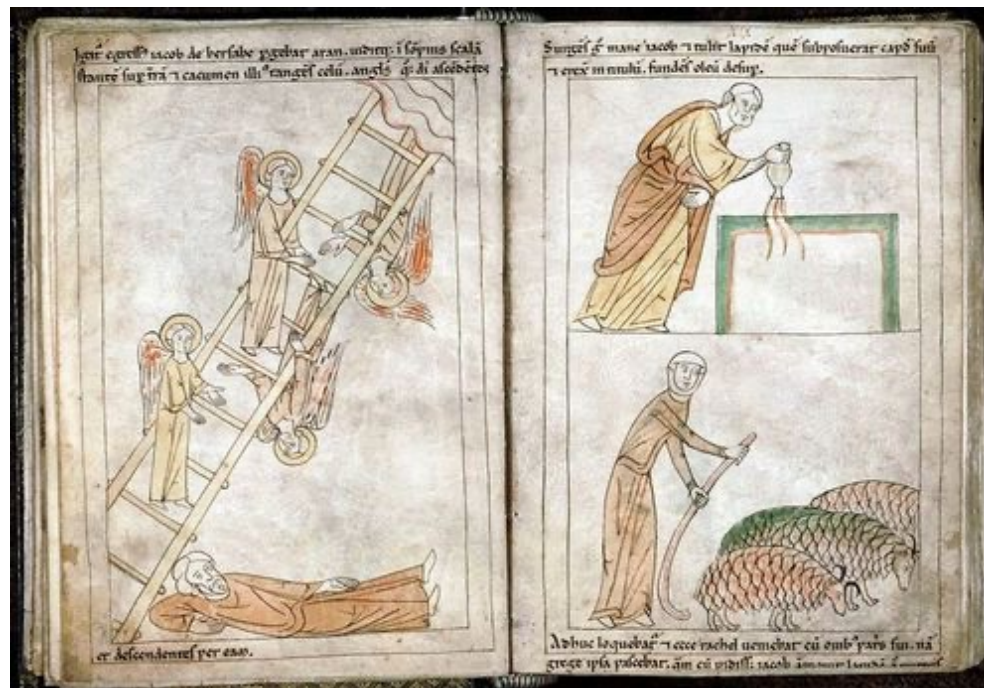 Igit' egress' iacob de bersabe pgebat aran. uiditq; i sōpnis scalā
stantē sup trā ⁊ cacumen illi' tangēs celū. angl's q; di ascēdētes
et descendentes per eam.
Surgēs g° mane iacob ⁊ tulit lapidē quē subposuerat capiti suo
⁊ erex in titulū. fundēs oleū desup.
Adhuc loquebat' ⁊ ecce rachel ueniebat cū ouib' patris sui. nā
gregē ipsa pascebat. q̄m cū uidiss; iacob